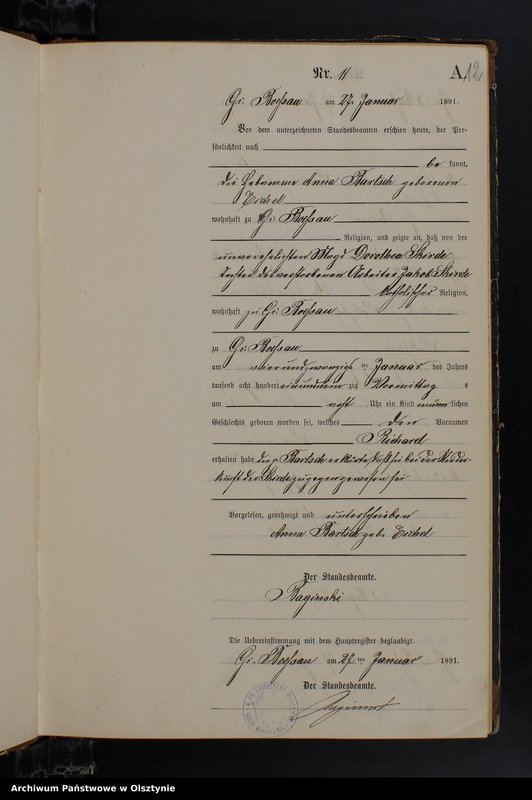 Nr. 11
A. 12
Gr. Bößau am 27. Januar 1891.
Vor dem unterzeichneten Standesbeamten erschien heute, der Per-
sönlichkeit nach
be kannt,
die Hebamme Anna Bartsch geborenen
Eichel
wohnhaft zu Gr. Bößau
Religion, und zeigte an, daß von der
unverehelichten Magd Dorothea Skirde
Tochter des verstorbenen Arbeiter Jakob Skirde
katholischer Religion,
wohnhaft zu Gr. Bößau
zu Gr. Bößau
am vierundzwanzigs ten Januar des Jahres
tausend acht hundert einundneun zig Vormittag s
um acht Uhr ein Kind männ lichen
Geschlechts geboren worden sei, welches den Vornamen
Richard
erhalten habe die p. Bartsch erklärte, daß sie bei der Nieder-
kunft der Skirde zugegen gewesen sei
Vorgelesen, genehmigt und unterschrieben
Anna Bartsch geb. Eichel
Der Standesbeamte.
Raginski
Die Uebereinstimmung mit dem Hauptregister beglaubigt.
Gr. Bößau am 27 ten Januar 1891.
Der Standesbeamte.
Archiwum Państwowe w Olsztynie